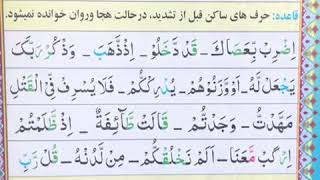 قاعده: حرف های ساکن قبل از تشدید، در حالت هجا وروان خوانده نمیشود.
اِضْرِبْ بِّعَصَاكَ - قَدْ دَّخَلُوْ - اِذْذَّهَبَ - وَذْكُرْ رَّبَّكَ
يَجْعَلْ لَّهُ - اَوْوَّزَنُوْهُمْ - يُدْرِكْكُّمْ - فَلَا يُسْرِفْ فِّى الْقَتْلِ
مَهَّدْتُّ - وَجَدْتُّمْ - قَالَتْ طَّآئِفَةٌ - اِذْظَّلَمْتُمْ
اِرْكَبْ مَّعَنَا - اَلَمْ نَخْلُقْكُّمْ - مِنْ لَّدُنْهُ - قُلْ رَّبِّ